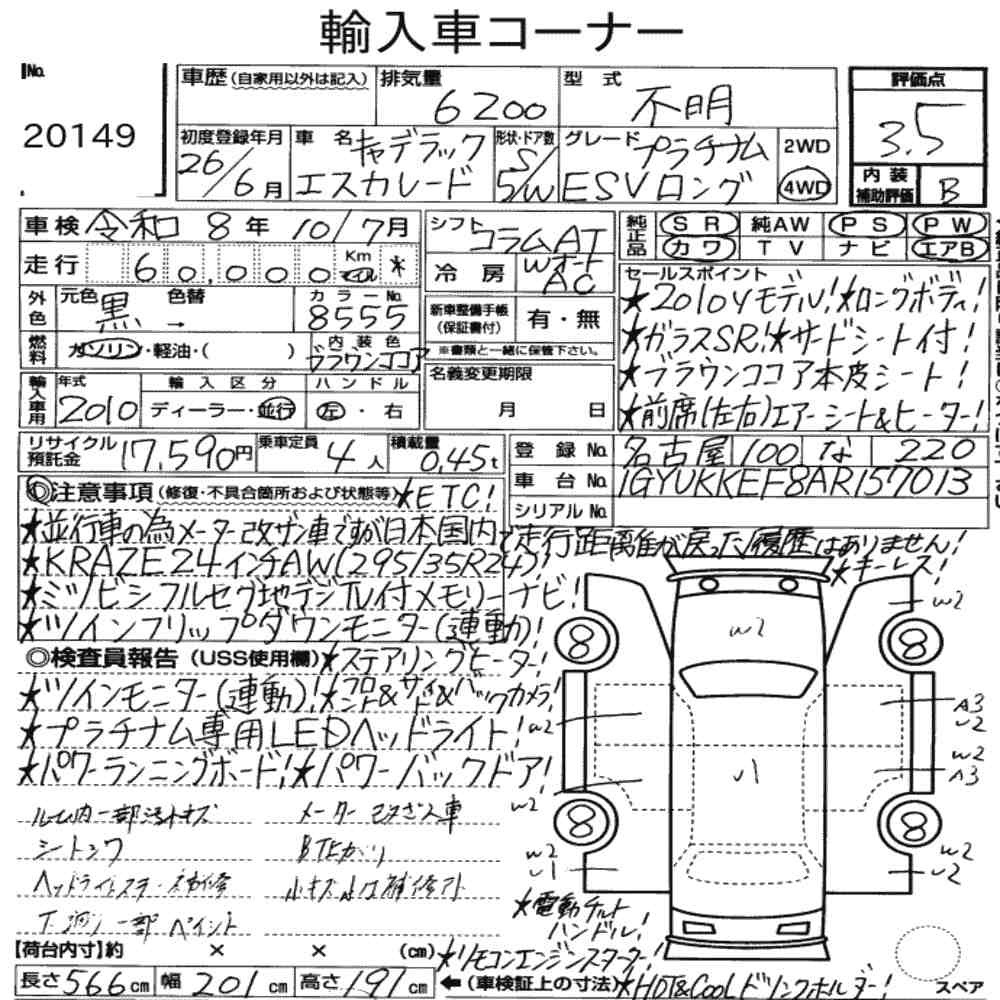 輸入車コーナー
No.
20149
車歴(自家用以外は記入)
排気量
6200
型式
不明
評価点
3.5
初度登録年月
26/6月
車名
キャデラック
エスカレード
形状・ドア数
S/5W
グレード
プラチナム
ESVロング
2WD
4WD
内装
補助評価
B
車検 令和 8年 10/7月
走行 60,000 Km *
シフト
コラムAT
冷房
WオートAC
純正品
SR 純AW PS PW
カワ TV ナビ エアB
外色
元色 黒 → 色替
カラーNo.
8555
燃料
ガソリン・軽油・( )
内装色
ブラウンココア
新車整備手帳
(保証書付)
有・無
※書類と一緒に保管下さい。
セールスポイント
★2010Yモデル!★ロングボディ!
★ガラスSR!★サードシート付!
★ブラウンココア本皮シート!
★前席(左右)エアーシート&ヒーター!
輸入車用
年式
2010
輸入区分
ディーラー・並行
ハンドル
左・右
名義変更期限
月 日
リサイクル預託金
17,590円
乗車定員
4人
積載量
0.45t
登録No.
名古屋 100 な 220
車台No.
1GYUKKEF8AR157013
シリアルNo.
◎注意事項(修復・不具合箇所および状態等)★ETC!
★並行車の為メーター改ザン車ですが日本国内で走行距離が戻った履歴はありません!
★KRAZE24インチAW(295/35R24)!
★キーレス!
★ミツビシフルセグ地デジTV付メモリーナビ!
★ツインフリップダウンモニター(連動)!
◎検査員報告(USS使用欄)★ステアリングヒーター!
★ツインモニター(連動)!★フロント&サイド&バックカメラ!
★プラチナム専用LEDヘッドライト!
★パワーランニングボード!★パワーバックドア!
ルーム内一部汚れキズ
メーター改ざん車
シートシワ
ヘッドライトステー補修
下廻り一部ペイント
W2
W2
8
8
W2
A3
U2
U1
W2
A3
W2
8
8
W2
U1
W2
U2
★電動チルト
ハンドル!
★リモコンエンジンスターター!
【荷台内寸】約 × × (cm)
長さ566cm 幅201cm 高さ191cm
←(車検証上の寸法)★HOT&COOLドリンクホルダー!
スペア